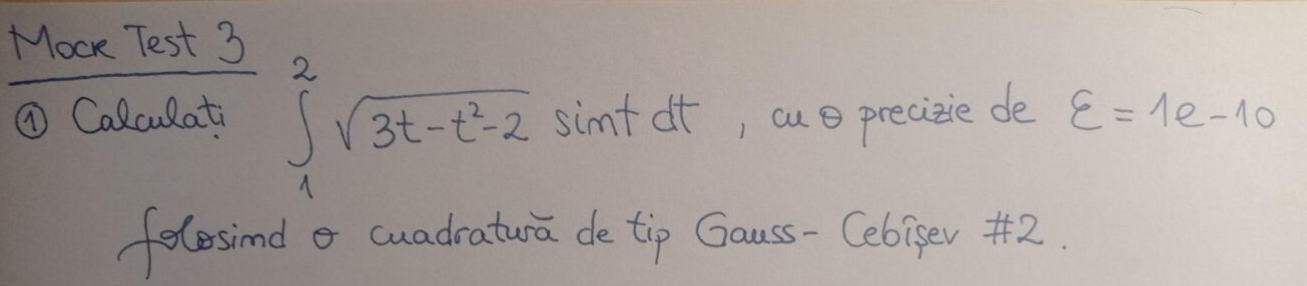 Mock Test 3
① Calculați ∫₁² √(3t-t²-2) sint dt , cu o precizie de ε = 1e-10
folosind o cuadratură de tip Gauss-Cebîșev #2.